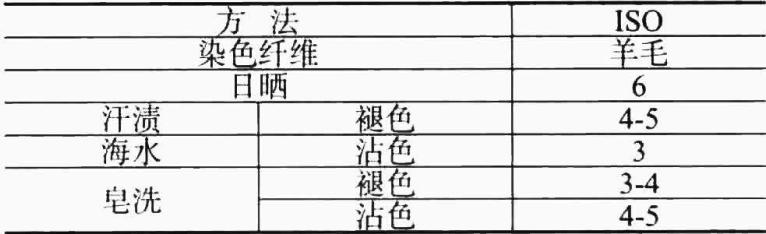 方 法 ISO
染色纤维 羊毛
日晒 6
汗渍 褪色 4-5
海水 沾色 3
皂洗 褪色 3-4
沾色 4-5